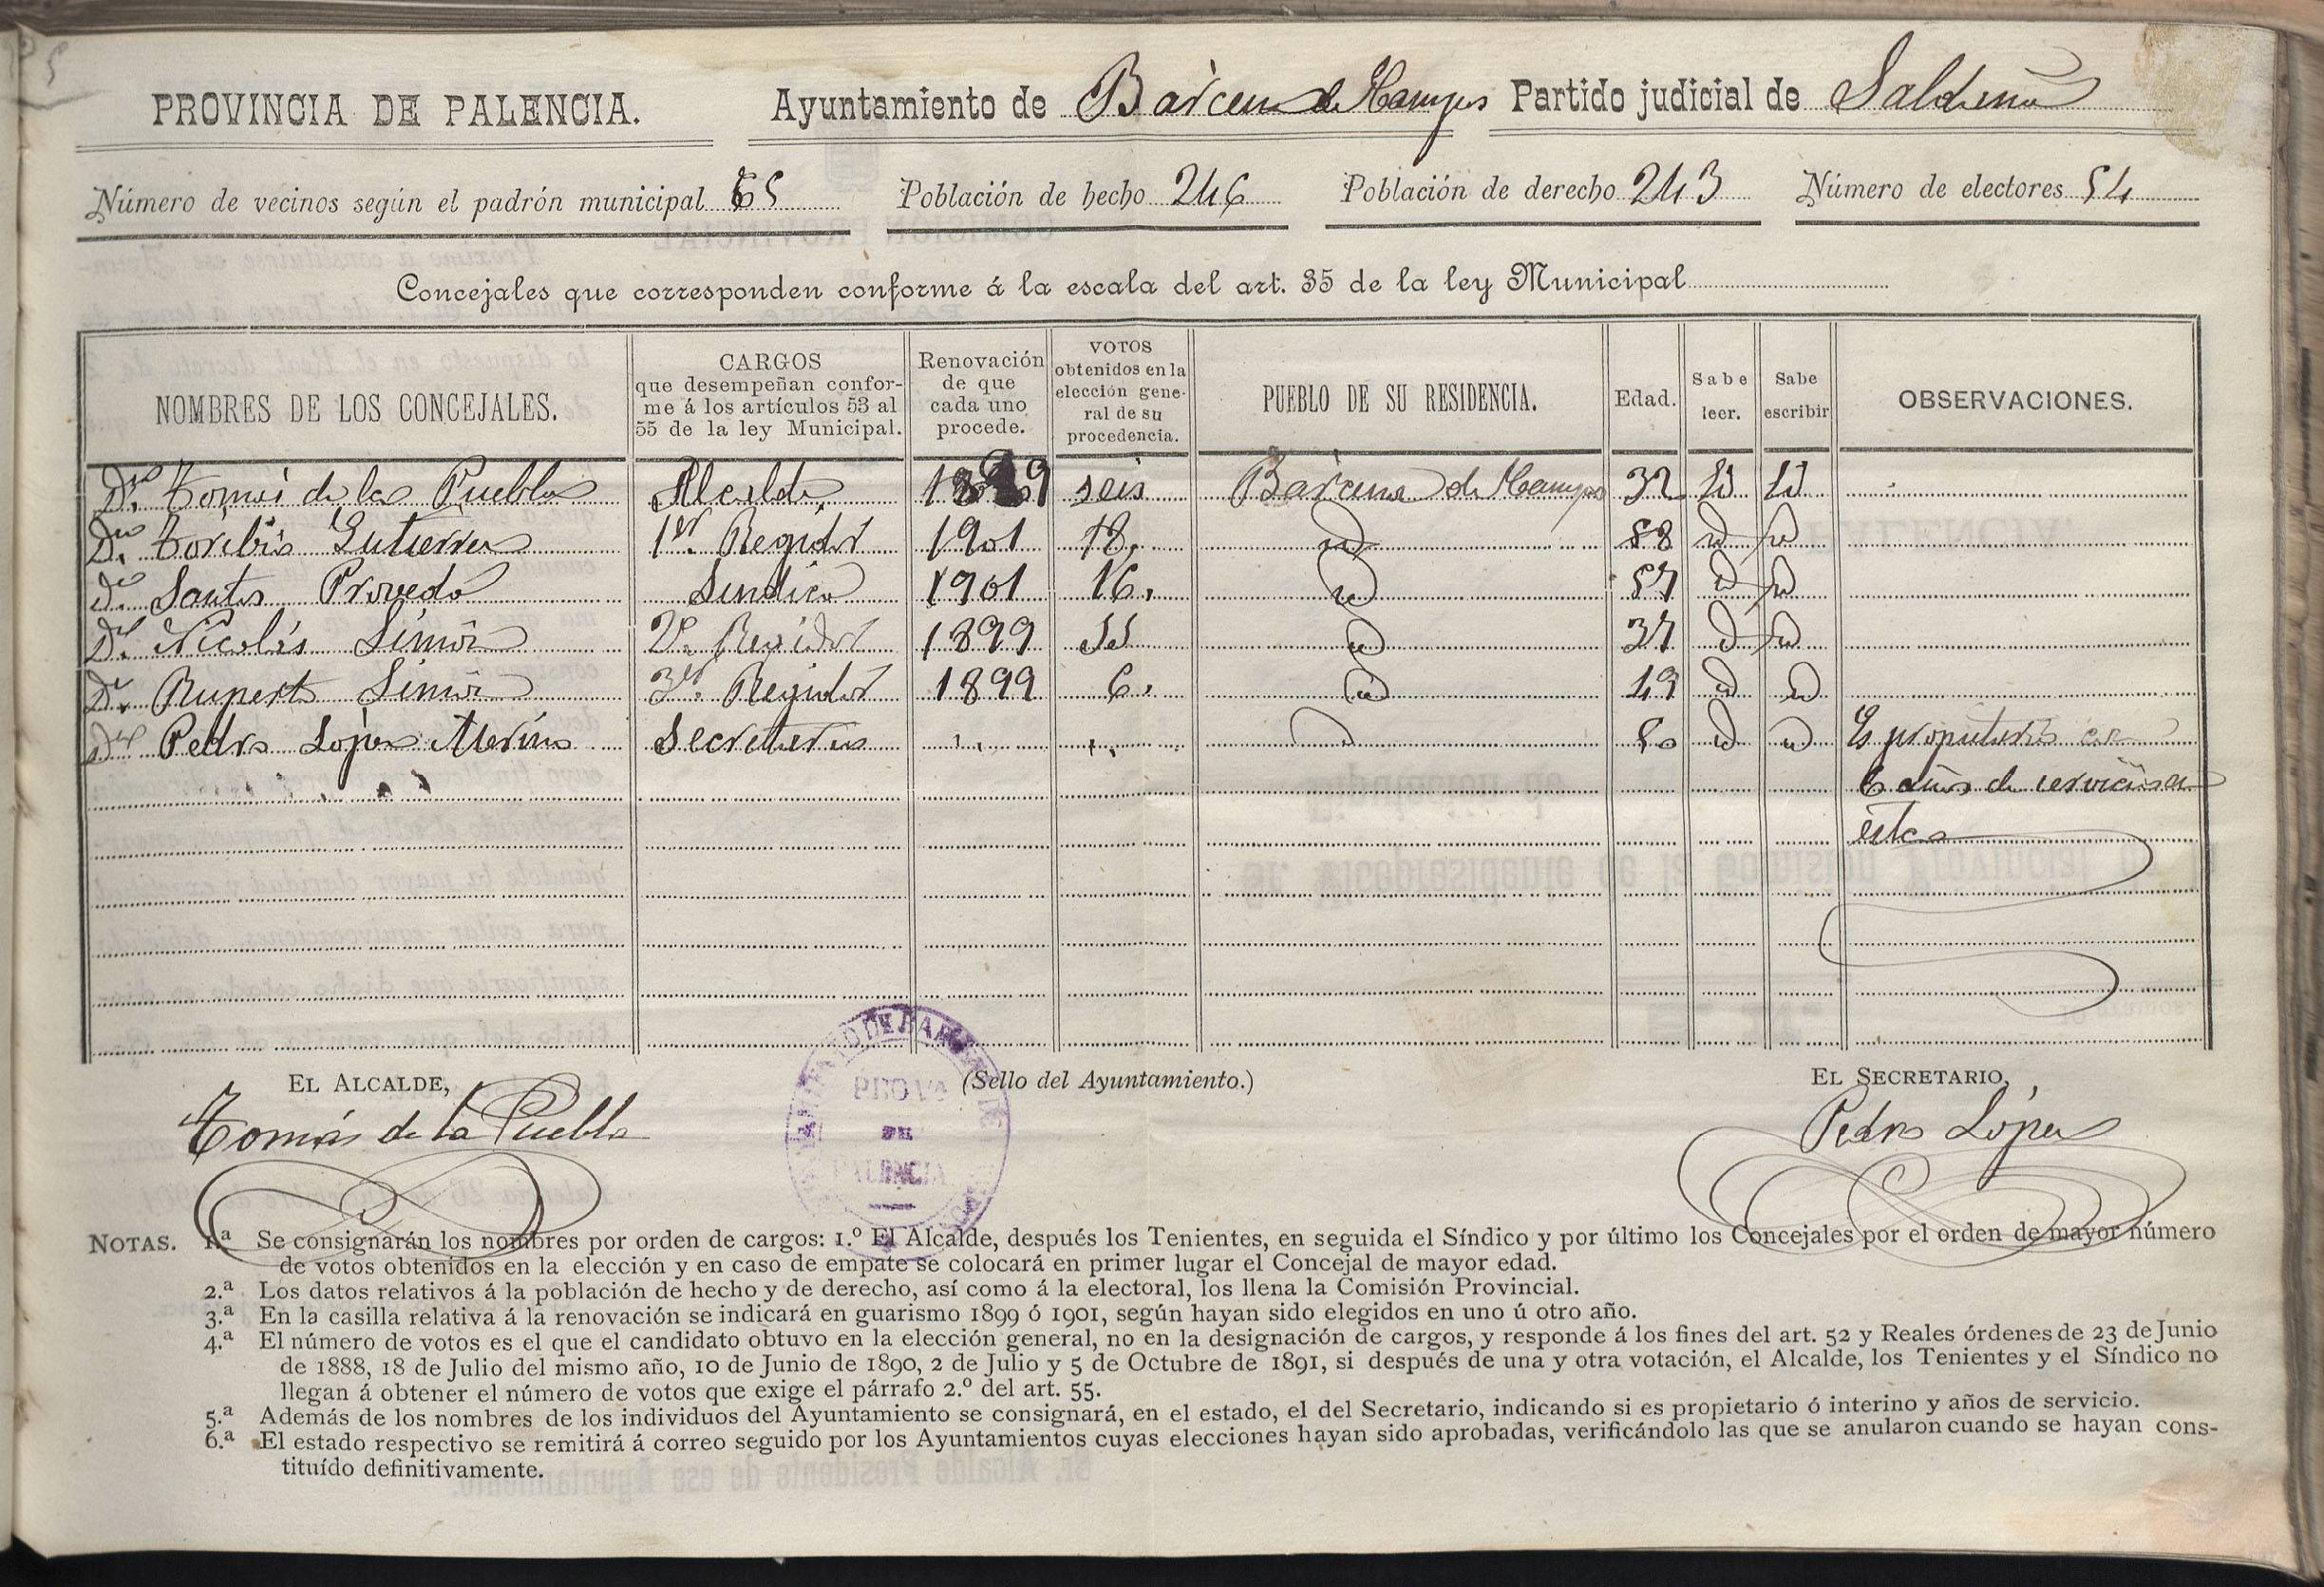 PROVINCIA DE PALENCIA. Ayuntamiento de Bárcena de Campos Partido judicial de Saldaña
Número de vecinos según el padrón municipal 65 Población de hecho 246 Población de derecho 243 Número de electores 54
Concejales que corresponden conforme á la escala del art. 35 de la ley Municipal
NOMBRES DE LOS CONCEJALES. CARGOS que desempeñan conforme á los artículos 53 al 55 de la ley Municipal. Renovación de que cada uno procede. VOTOS obtenidos en la elección general de su procedencia. PUEBLO DE SU RESIDENCIA. Edad. Sabe leer. Sabe escribir OBSERVACIONES.
Dn. Tomás de la Puebla Alcalde 1899 seis Bárcena de Campos 32
Dn. Toribio Gutierrez 1er. Regidor 1901 18. id 58 id id
Dn. Santos Provedo Sindico 1901 16. id 57 id id
Dn. Nicolás Simón 2o. Regidor 1899 id 37 id id
Dn. Ruperto Simón 3er. Regidor 1899 6. id 49 id id
Dn. Pedro López Merino Secretario id 50 id id Es propietario con
6 años de servicios en
esta
EL ALCALDE, (Sello del Ayuntamiento.) EL SECRETARIO,
Tomás de la Puebla Pedro López
PROVA
DE
PALENCIA
NOTAS. 1.ª Se consignarán los nombres por orden de cargos: 1.º El Alcalde, después los Tenientes, en seguida el Síndico y por último los Concejales por el orden de mayor número
de votos obtenidos en la elección y en caso de empate se colocará en primer lugar el Concejal de mayor edad.
2.ª Los datos relativos á la población de hecho y de derecho, así como á la electoral, los llena la Comisión Provincial.
3.ª En la casilla relativa á la renovación se indicará en guarismo 1899 ó 1901, según hayan sido elegidos en uno ú otro año.
4.ª El número de votos es el que el candidato obtuvo en la elección general, no en la designación de cargos, y responde á los fines del art. 52 y Reales órdenes de 23 de Junio
de 1888, 18 de Julio del mismo año, 10 de Junio de 1890, 2 de Julio y 5 de Octubre de 1891, si después de una y otra votación, el Alcalde, los Tenientes y el Síndico no
llegan á obtener el número de votos que exige el párrafo 2.º del art. 55.
5.ª Además de los nombres de los individuos del Ayuntamiento se consignará, en el estado, el del Secretario, indicando si es propietario ó interino y años de servicio.
6.ª El estado respectivo se remitirá á correo seguido por los Ayuntamientos cuyas elecciones hayan sido aprobadas, verificándolo las que se anularon cuando se hayan cons-
tituído definitivamente.